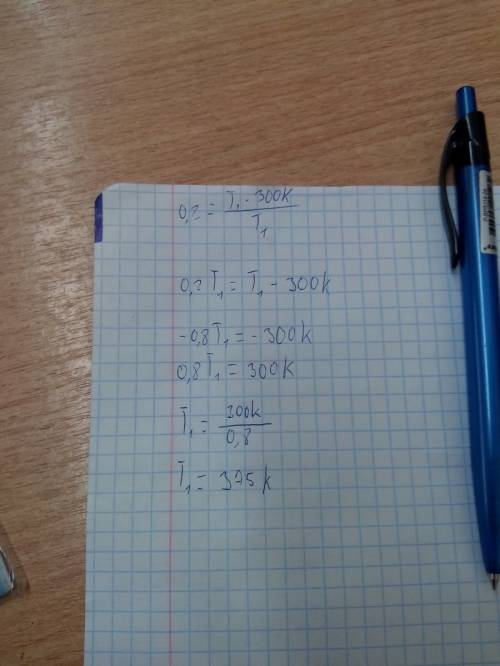 0,2 = (T₁ - 300k) / T₁
0,2 T₁ = T₁ - 300k
-0,8 T₁ = -300k
0,8 T₁ = 300k
T₁ = 300k / 0,8
T₁ = 375 k